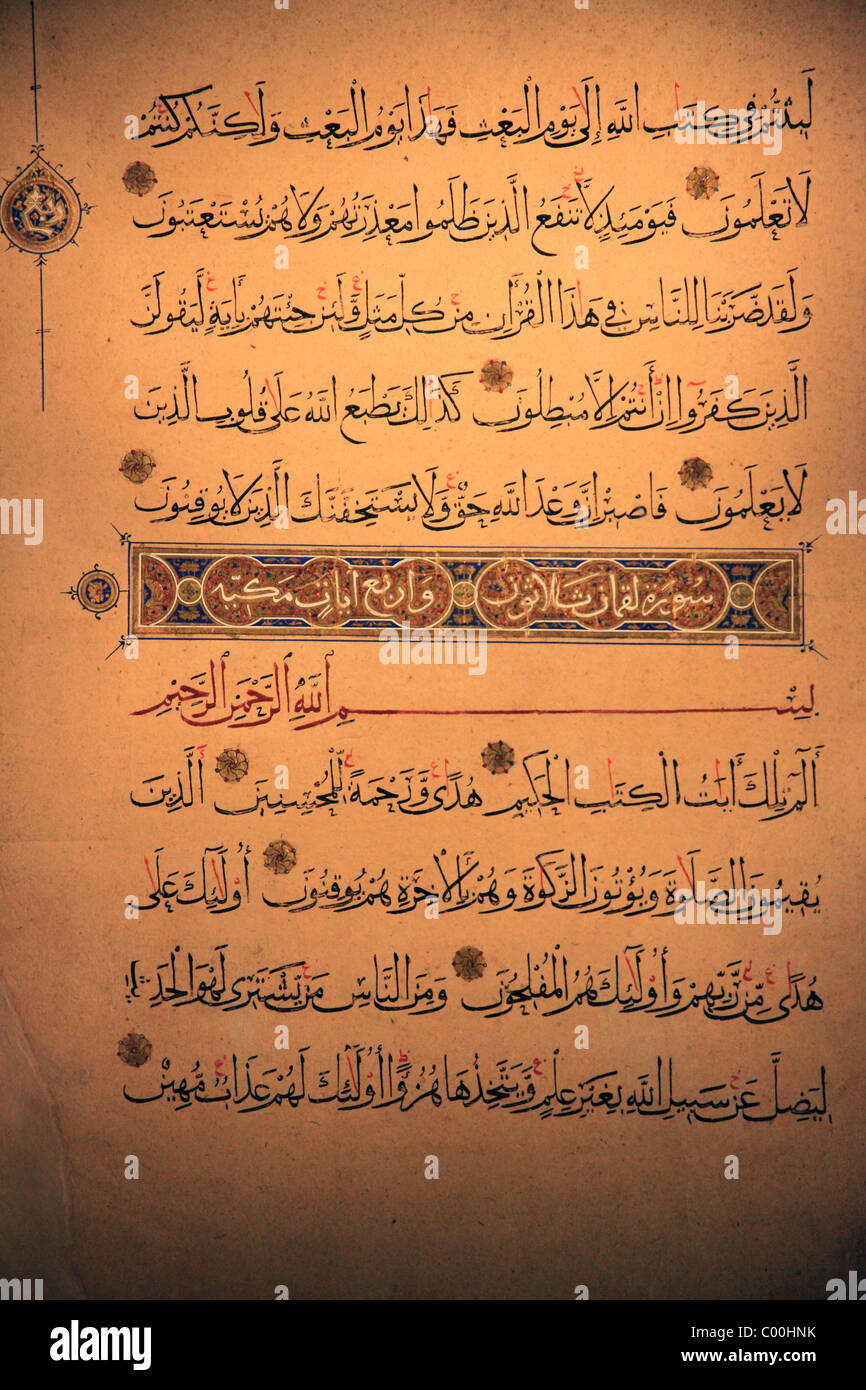 لَبِثْتُمْ فِي كِتَابِ اللَّهِ إِلَى يَوْمِ الْبَعْثِ فَهَذَا يَوْمُ الْبَعْثِ وَلَاكِنَّكُمْ كُنْتُمْ
لَا تَعْلَمُونَ فَيَوْمَئِذٍ لَا تَنْفَعُ الَّذِينَ ظَلَمُوا مَعْذِرَتُهُمْ وَلَا هُمْ يُسْتَعْتَبُونَ
وَلَقَدْ ضَرَبْنَا لِلنَّاسِ فِي هَذَا الْقُرْأَنِ مِنْ كُلِّ مَثَلٍ وَّلَئِنْ جِئْتَهُمْ بِأَيَةٍ لَيَقُولَنَّ
الَّذِينَ كَفَرُوا إِنْ أَنْتُمْ إِلَّا مُبْطِلُونَ كَذَالِكَ يَطْبَعُ اللَّهُ عَلَى قُلُوبِ الَّذِينَ
لَا يَعْلَمُونَ فَاصْبِرْ إِنَّ وَعْدَ اللَّهِ حَقٌّ وَّلَا يَسْتَخِفَّنَّكَ الَّذِينَ لَا يُوقِنُونَ
سورة لقمان ثلاثون واربع ايات مكية
بِسْمِ اللَّهِ الرَّحْمَنِ الرَّحِيمِ
أَلٓمٓ تِلْكَ أَيَاتُ الْكِتَابِ الْحَكِيمِ هُدًى وَّرَحْمَةً لِّلْمُحْسِنِينَ الَّذِينَ
يُقِيمُونَ الصَّلَاوةَ وَيُؤْتُونَ الزَّكَوةَ وَهُمْ بِالْأَخِرَةِ هُمْ يُوقِنُونَ أُولَٓئِكَ عَلَى
هُدًى مِّن رَّبِّهِمْ وَأُولَٓئِكَ هُمُ الْمُفْلِحُونَ وَمِنَ النَّاسِ مَنْ يَّشْتَرِى لَهْوَ الْحَدِيثِ
لِيُضِلَّ عَنْ سَبِيلِ اللَّهِ بِغَيْرِ عِلْمٍ وَّيَتَّخِذَهَا هُزُوًا أُولَٓئِكَ لَهُمْ عَذَابٌ مُّهِينٌ
alamy
Image ID: C00HNK
www.alamy.com